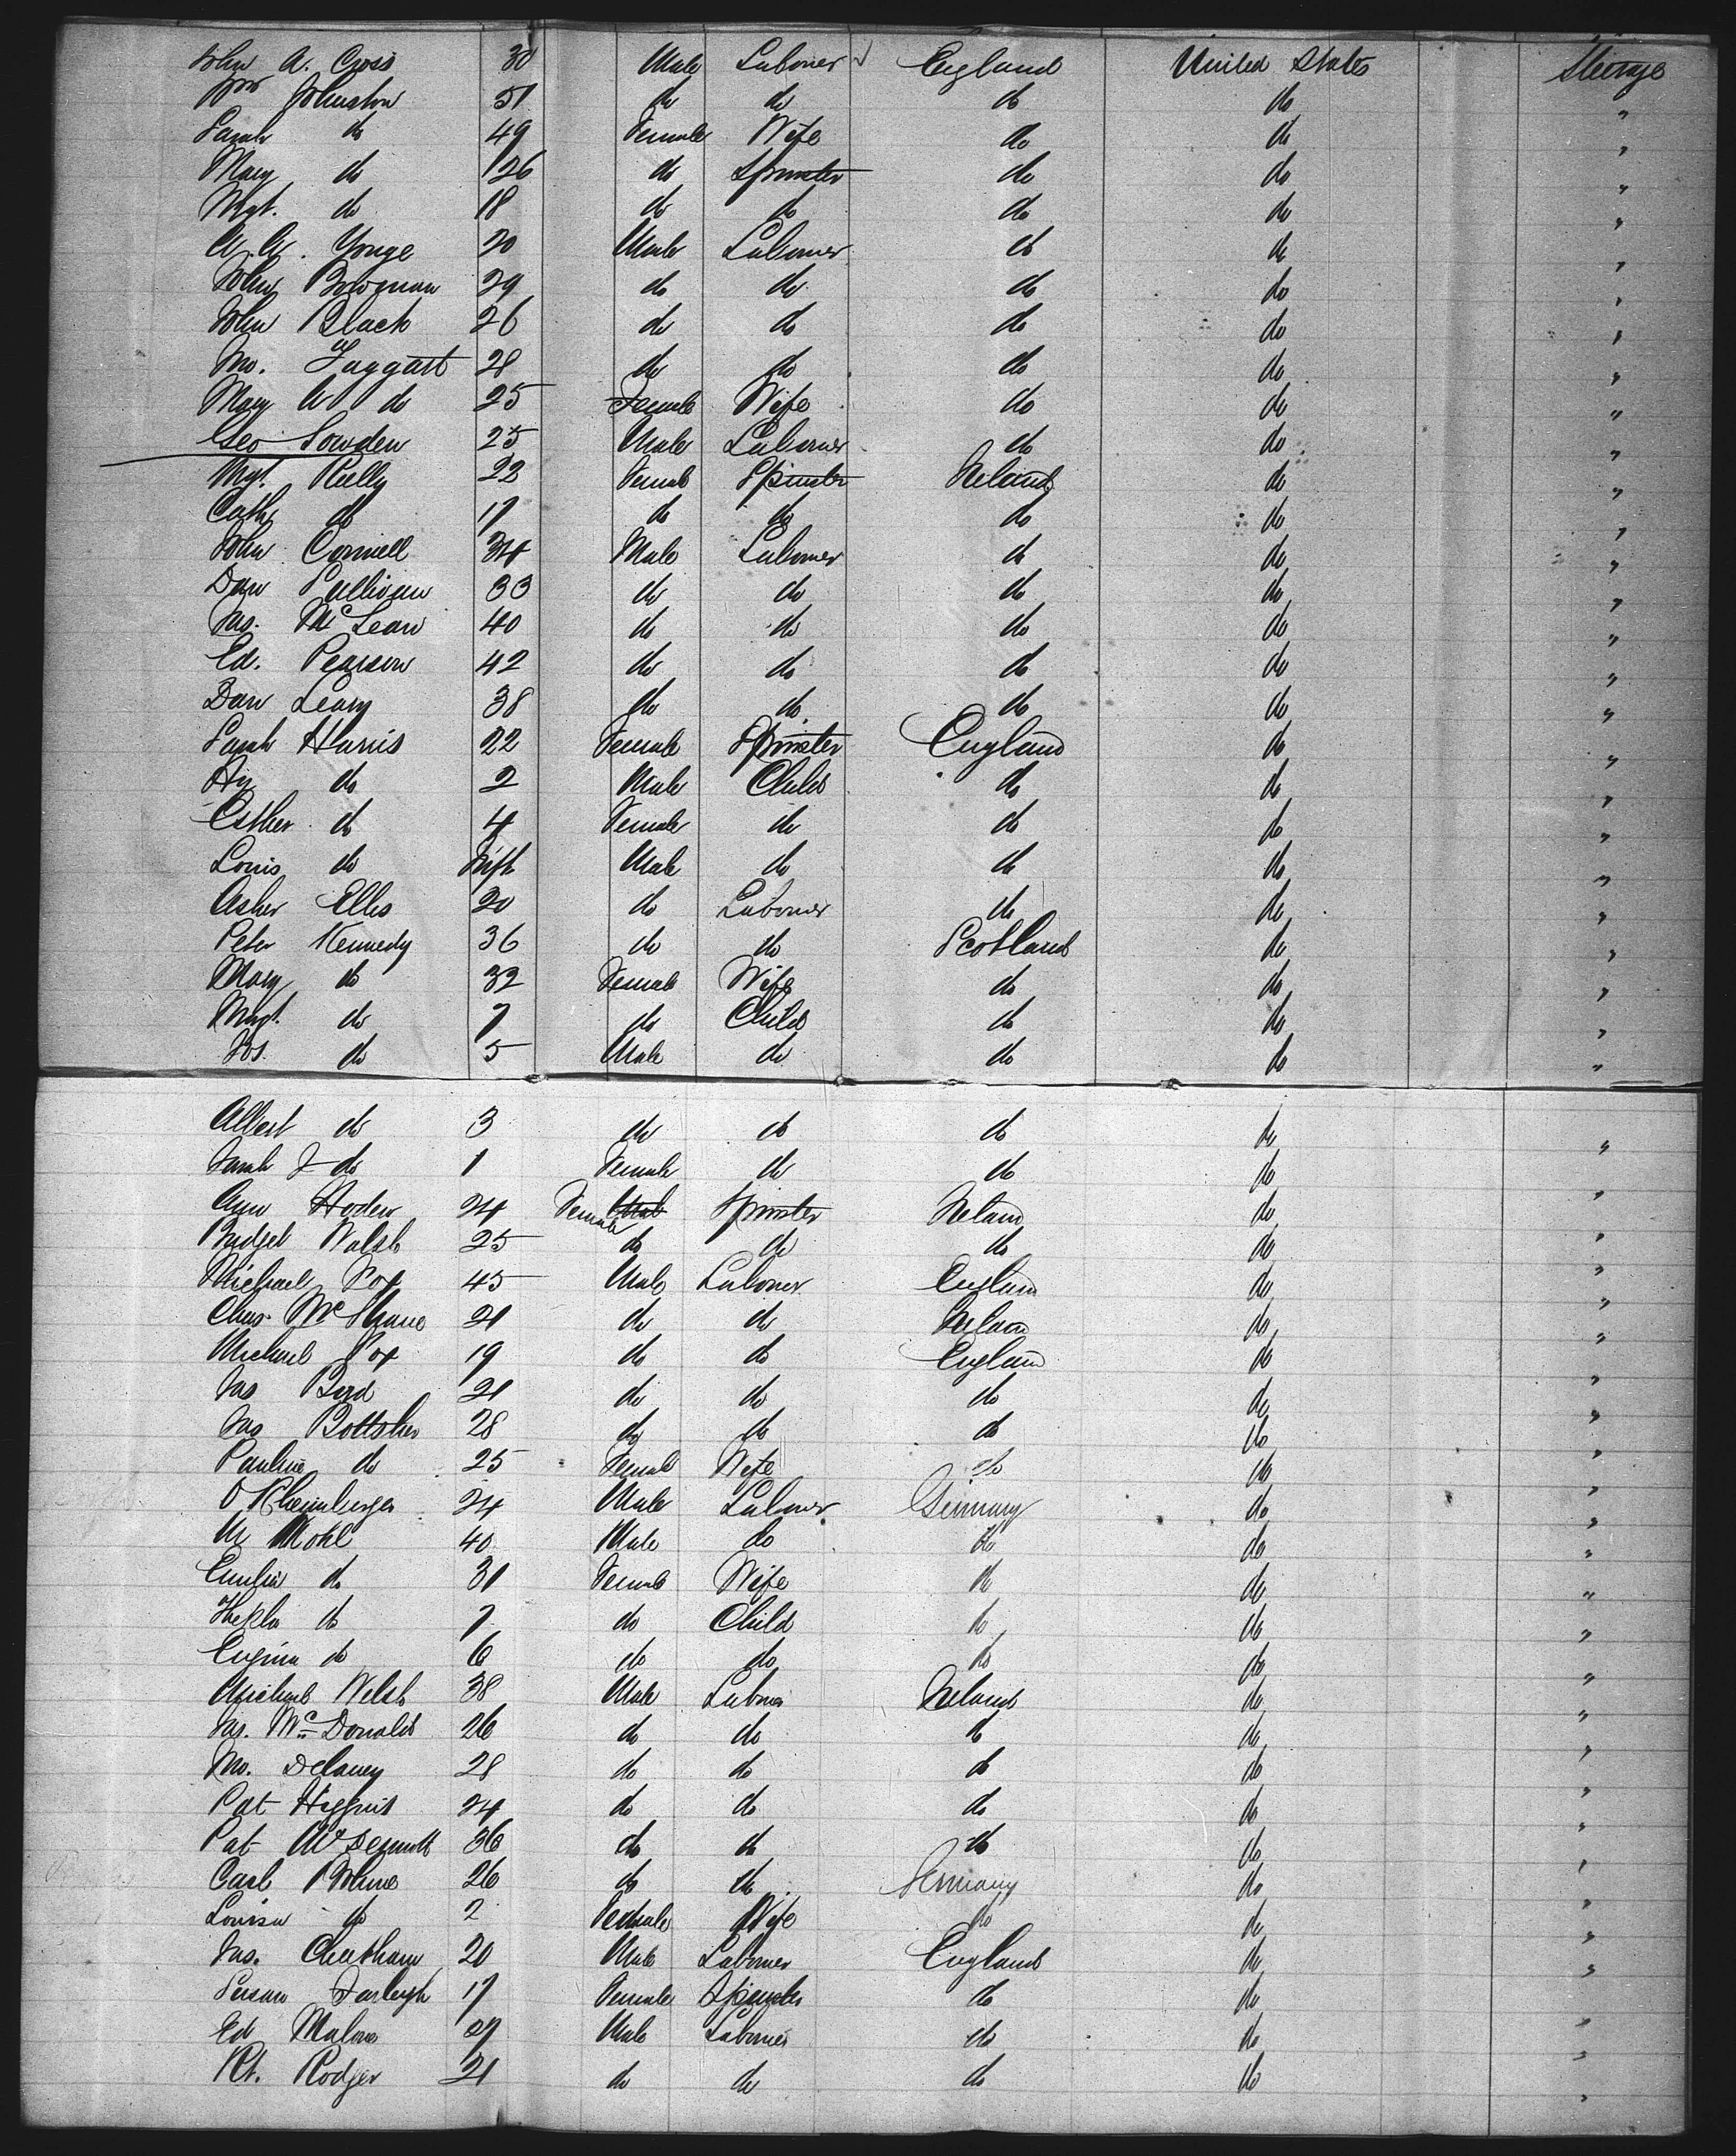 John A. Cross 30 Male Labourer England United States Steerage
Wm Johnston 51 do do do do "
Sarah do 49 Female Wife do do "
Mary do 26 do Spinster do do "
Mgt. do 18 do do do do "
A. W. Yonge 20 Male Labourer do do "
John Brognan 29 do do do do "
John Black 26 do do do do "
Jno. Taggart 28 do do do do "
Mary A do 25 Female Wife do do "
Geo Sowden 25 Male Labourer do do "
Mgt. Reilly 22 Female Spinster Ireland do "
Cath do 17 do do do do "
John Connell 34 Male Labourer do do "
Dan Sullivan 33 do do do do "
Jas. McLean 40 do do do do "
Ed. Pearson 42 do do do do "
Dan Leary 38 do do do do "
Sarah Harris 22 Female Spinster England do "
Hy do 2 Male Child do do "
Esther do 4 Female do do do "
Louis do Inft Male do do do "
Asher Ellis 20 do Labourer do do "
Peter Kennedy 36 do do Scotland do "
Mary do 32 Female Wife do do "
Mgt. do 7 do Child do do "
Jos. do 5 Male do do do "
Albert do 3 do do do do "
Sarah J do 1 Female do do do "
Ann Hoden 24 Female Male Spinster Ireland do "
Bridget Walsh 25 do do do do "
Michael Fox 45 Male Labourer England do "
Chas. McShane 21 do do Ireland do "
Michael Fox 19 do do England do "
Jas Bird 21 do do do do "
Jas Bottsher 28 do do do do "
Pauline do 25 Female Wife do do "
O Kheimberger 24 Male Labourer Germany do "
M Mohl 40 Male do do do "
Emilia do 31 Female Wife do do "
Thekla do 7 do Child do do "
Eugina do 6 do do do do "
Michael Welsh 38 Male Labourer Ireland do "
Jas. McDonald 26 do do do do "
Jno. Delaney 28 do do do do "
Pat Higgins 24 do do do do "
Pat McDermott 36 do do do do "
Carl 26 do do Germany do "
Louisa do 2 Female Wife do do "
Jas. Cheetham 20 Male Labourer England do "
Susan Farleigh 17 Female Spinster do do "
Ed Malone 27 Male Labourer do do "
Rt. Rodger 21 do do do do "